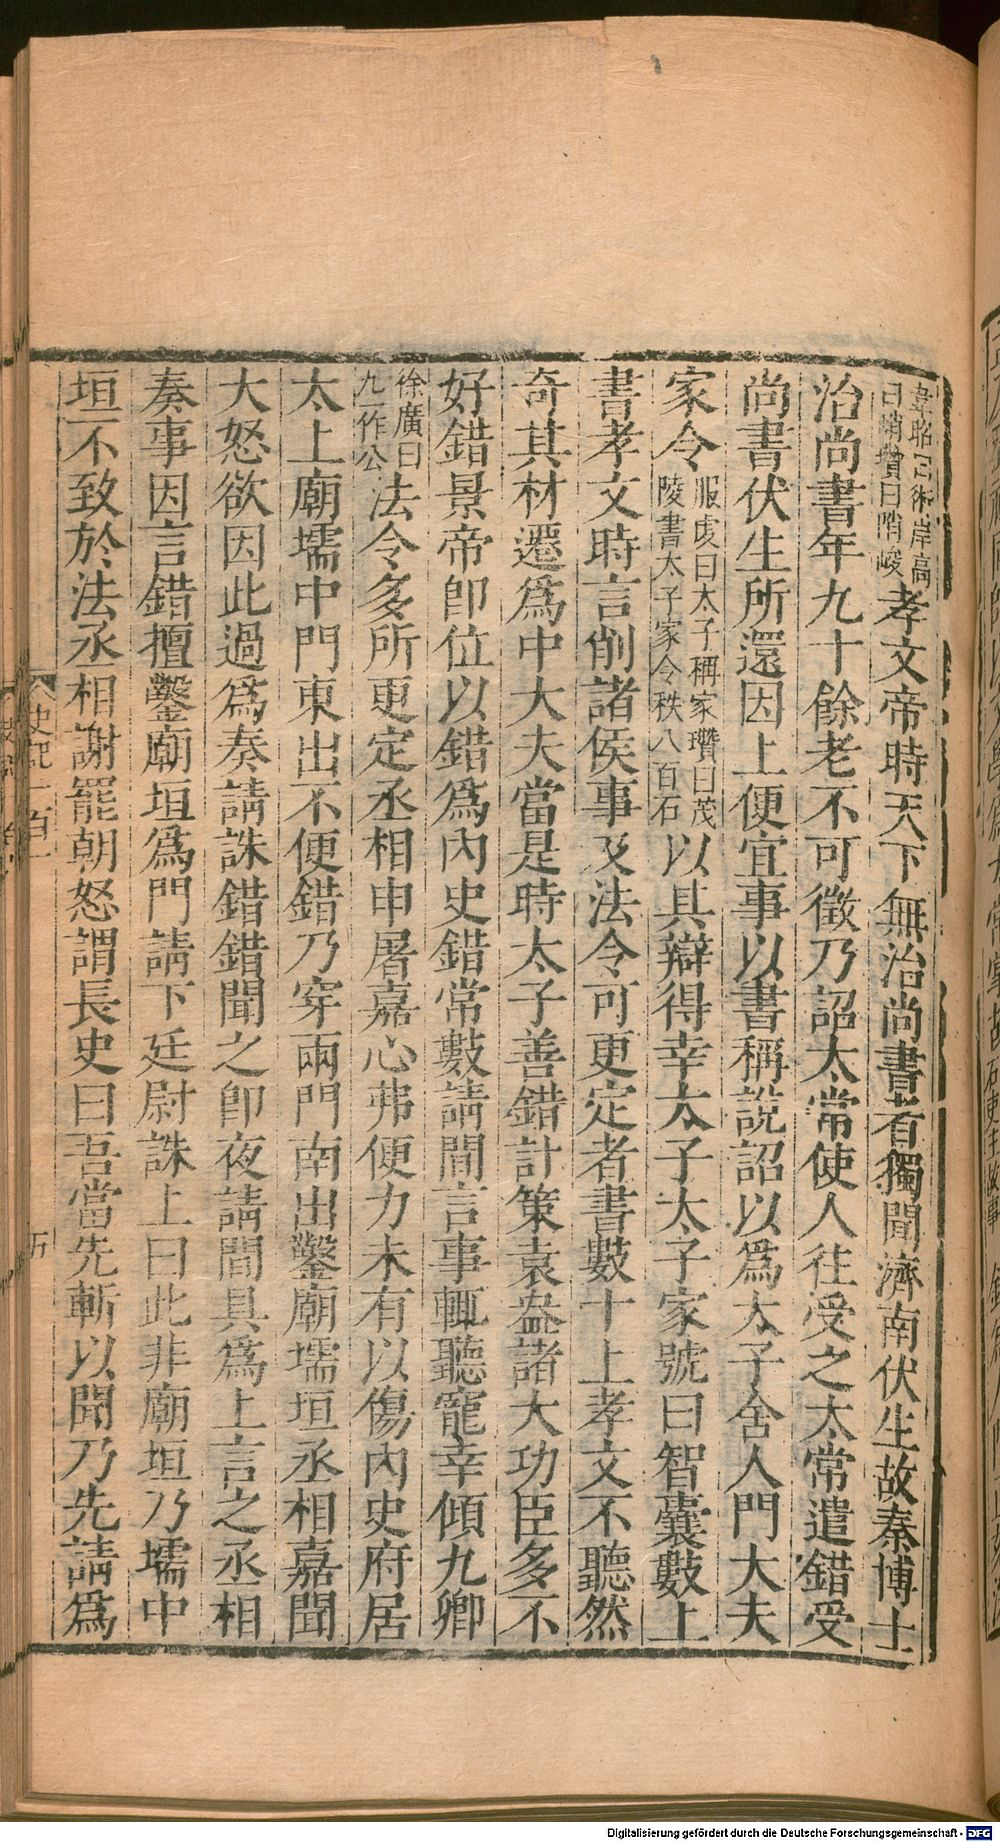 韋昭曰術岸高
曰峭瓚曰陗峻孝文帝時天下無治尚書者獨聞濟南伏生故秦博士
治尚書年九十餘老不可徵乃詔太常使人往受之太常遣錯受
尚書伏生所還因上便宜事以書稱說詔以爲太子舍人門大夫
家令服虔曰太子稱家瓚曰茂
陵書太子家令秩八百石以其辯得幸太子太子家號曰智囊數上
書孝文時言削諸侯事及法令可更定者書數十上孝文不聽然
奇其材遷爲中大夫當是時太子善錯計策袁盎諸大功臣多不
好錯景帝卽位以錯爲內史錯常數請閒言事輒聽寵幸傾九卿
徐廣曰
九一作公法令多所更定丞相申屠嘉心弗便力未有以傷內史府居
太上廟壖中門東出不便錯乃穿兩門南出鑿廟壖垣丞相嘉聞
大怒欲因此過爲奏請誅錯錯聞之卽夜請閒具爲上言之丞相
奏事因言錯擅鑿廟垣爲門請下廷尉誅上曰此非廟垣乃壖中
垣不致於法丞相謝罷朝怒謂長史曰吾當先斬以聞乃先請爲
史記一百一
五
Digitalisierung gefördert durch die Deutsche Forschungsgemeinschaft - DFG